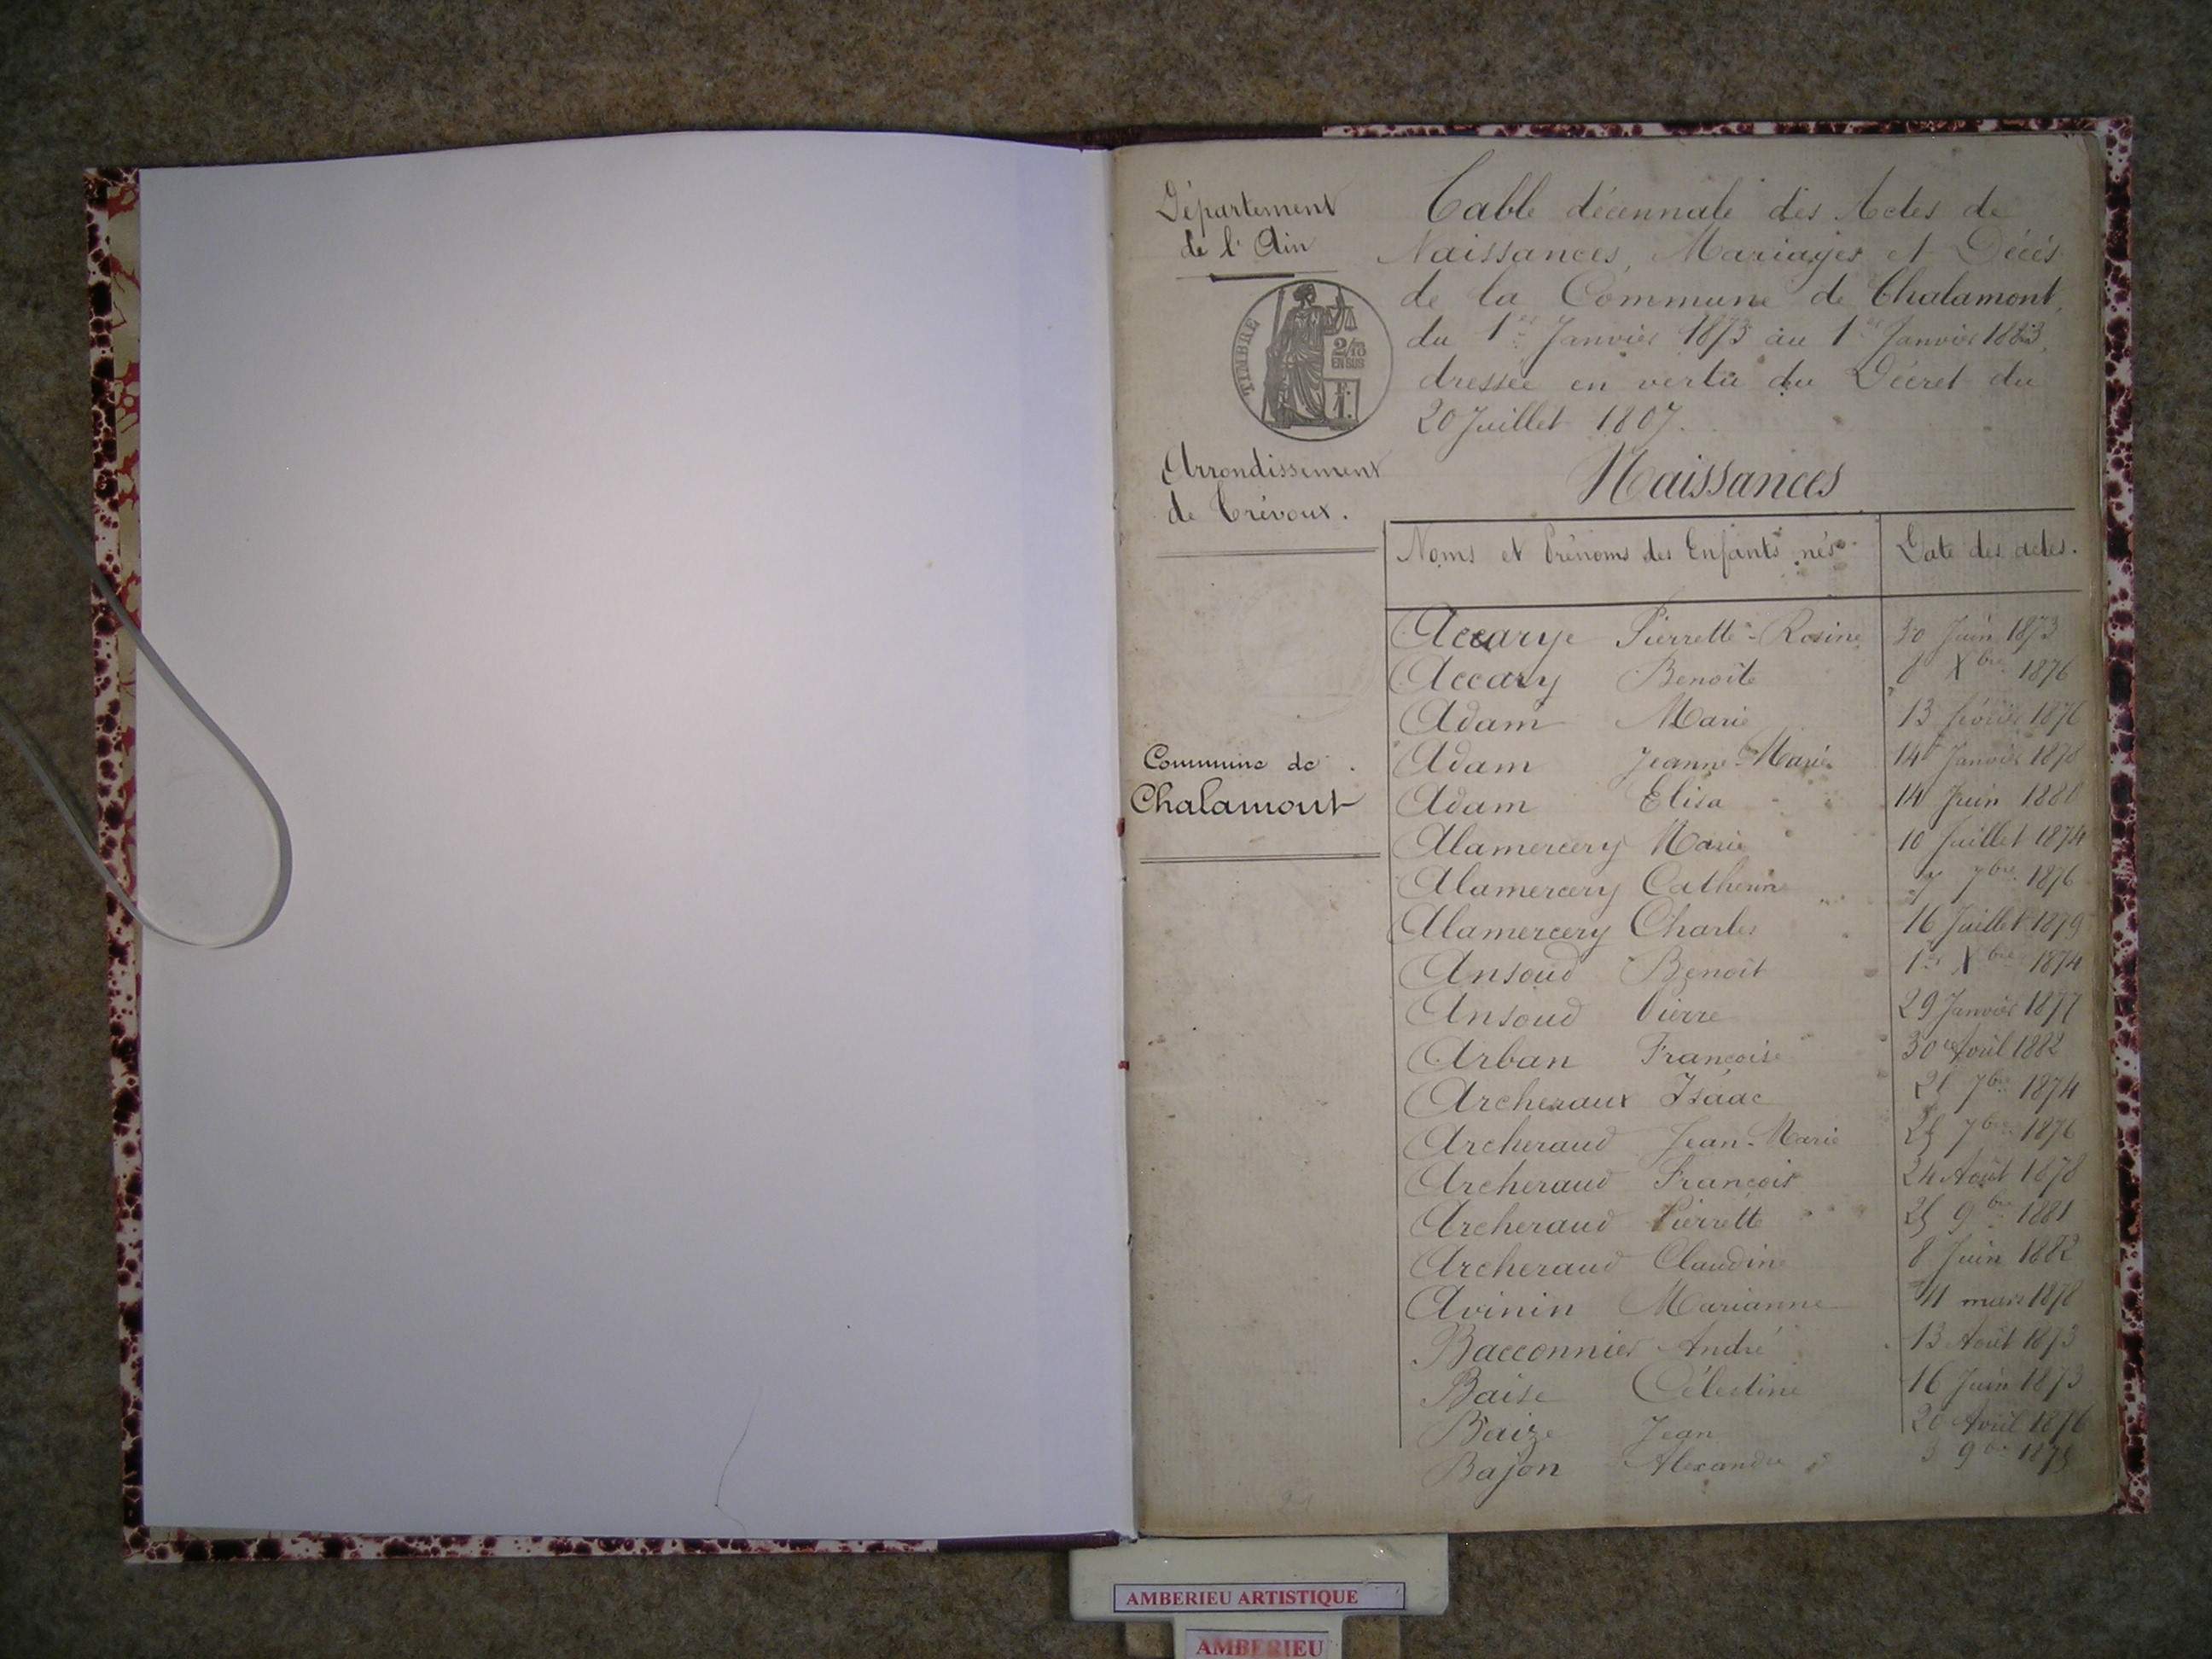 Département
de l'Ain
TIMBRE
2/10
EN SUS
1 F.
Arrondissement
de Trévoux.
Commune de
Chalamont
Table décennale des Actes de
Naissances, Mariages et Décès
de la Commune de Chalamont,
du 1er Janvier 1873 au 1er Janvier 1883,
dressée en vertu du Décret du
20 Juillet 1807.
Naissances
Noms et Prénoms des Enfants nés Date des actes.
Accarye Pierrette-Rosine 30 Juin 1873
Accary Benoîte 8 Xbre 1876
Adam Marie 13 février 1876
Adam Jeanne-Marie 14 Janvier 1878
Adam Elisa 14 Juin 1880
Alamercery Marie 10 Juillet 1874
Alamercery Catherine 7bre 1876
Alamercery Charles 16 Juillet 1879
Ansoud Benoit 1er Xbre 1874
Ansoud Pierre 29 Janvier 1877
Arban Françoise 30 Avril 1882
Archeraux Isaac 21 7bre 1874
Archeraud Jean-Marie 25 7bre 1876
Archeraud François 24 Août 1878
Archeraud Pierrette 25 9bre 1881
Archeraud Claudine 8 Juin 1882
Avinin Marianne mars 1878
Bacconnier André 13 Août 1873
Baise Célestine 16 Juin 1873
Baize Jean 20 Avril 1876
Bajon Alexandre 3 9bre 1875
AMBERIEU ARTISTIQUE
AMBERIEU